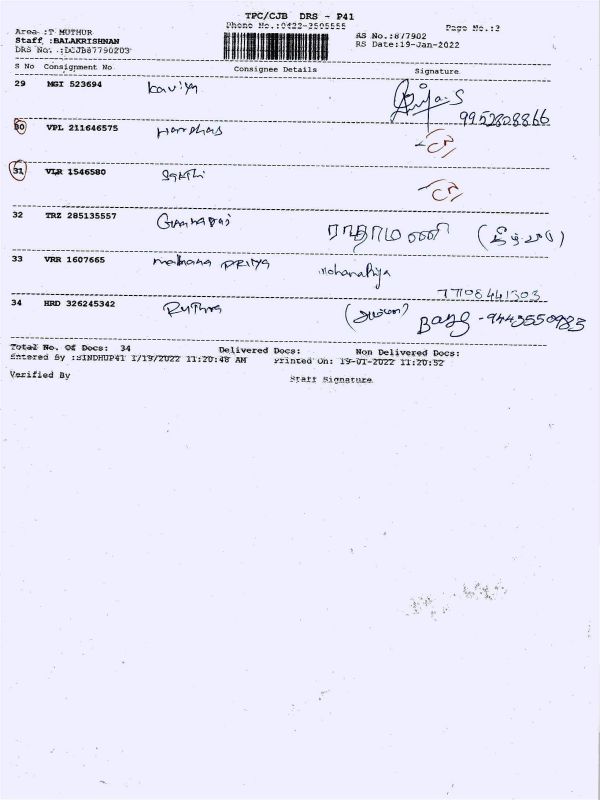 TPC/CJB DRS - P41
Phone No.:0422-3505555
Page No.:3
Area :T MUTHUR
Staff :BALAKRISHNAN
DRS No. :DCJB87790203
RS No.:877902
RS Date:19-Jan-2022
S No Consignment No Consignee Details Signature
29 MGI 523694 Kaviya
9952808866
30 VPL 211646575
31 VLR 1546580
32 TRZ 285135557 ராதாமணி
33 VRR 1607665 PRIYA
7708441303
34 HRD 326245342 Ruthra (அம்மா)
-9443550983
Total No. Of Docs: 34 Delivered Docs: Non Delivered Docs:
Entered By :SINDHUP41 1/19/2022 11:20:48 AM Printed On: 19-01-2022 11:20:52
Verified By Staff Signature